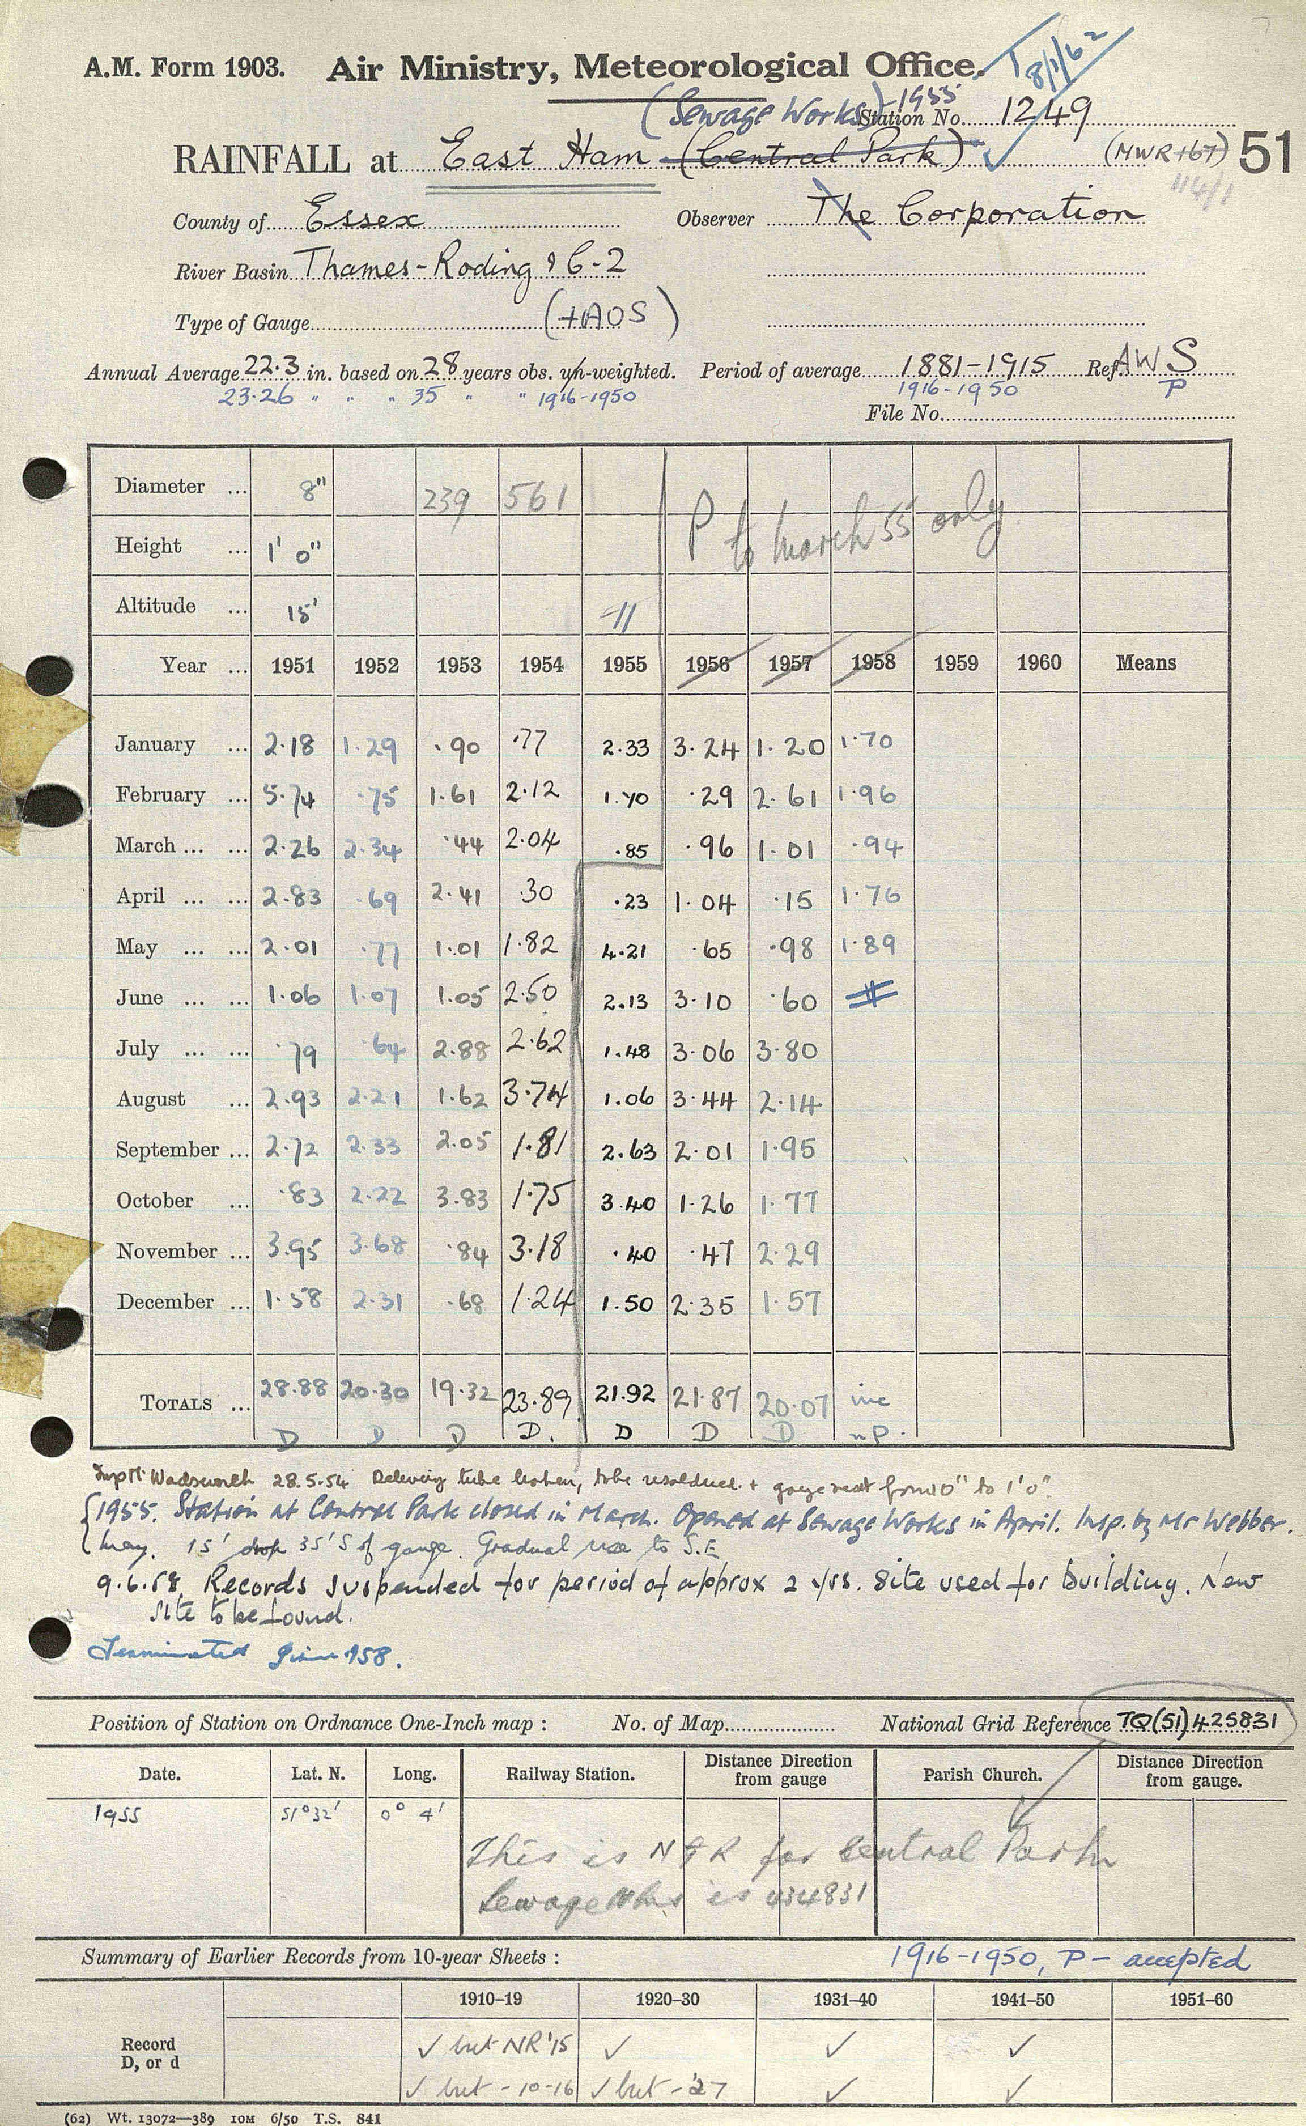 A.M. Form 1903. Air Ministry, Meteorological Office. 8/1/62
(Sewage Works) -1955 Station No. 1249
RAINFALL at East Ham (Central Park) (MWR+67) 51
114/1
County of Essex Observer The Corporation
River Basin Thames-Roding & C-2
Type of Gauge (+AOS)
Annual Average 22.3 in. based on 28 years obs. un-weighted. Period of average 1881-1915 Ref. AWS
23.26 " " " 35 " " 1916-1950 1916-1950 P
File No.
Diameter ... 8" 239 561
P to march 55 only
Height ... 1' 0"
Altitude ... 15' -11
Year ... 1951 1952 1953 1954 1955 1956 1957 1958 1959 1960 Means
January ... 2.18 1.29 .90 .77 2.33 3.24 1.20 1.70
February ... 5.74 .75 1.61 2.12 1.70 .29 2.61 1.96
March ... ... 2.26 2.34 .44 2.04 .85 .96 1.01 .94
April ... ... 2.83 .69 2.41 .30 .23 1.04 .15 1.76
May ... ... 2.01 .77 1.01 1.82 4.21 .65 .98 1.89
June ... ... 1.06 1.07 1.05 2.50 2.13 3.10 .60
July ... ... .79 .64 2.88 2.62 1.48 3.06 3.80
August ... 2.93 2.21 1.62 3.74 1.06 3.44 2.14
September ... 2.72 2.33 2.05 1.81 2.63 2.01 1.95
October ... .83 2.22 3.83 1.75 3.40 1.26 1.77
November ... 3.95 3.68 .84 3.18 .40 .47 2.29
December ... 1.58 2.31 .68 1.24 1.50 2.35 1.57
TOTALS ... 28.88 20.30 19.32 23.89 21.92 21.87 20.07 inc
D D D D. D D D n.p.
Insp Mr Wadsworth 28.5.54 Delivery tube broken, to be resoldered. + gauge reset from 10" to 1'0".
1955. Station at Central Park closed in March. Opened at Sewage Works in April. Insp. by Mr Webber.
May. 15' 35' S of gauge. Gradual rise to S.E
9.6.58 Records suspended for period of approx 2 yrs. Site used for building. New
site to be found.
Terminated 1958.
Position of Station on Ordnance One-Inch map : No. of Map National Grid Reference TQ(51)425831
Date. Lat. N. Long. Railway Station. Distance Direction from gauge Parish Church. Distance Direction from gauge.
1955 51°32' 0° 4'
This is NGR for Central Park
Sewage Wks is 434831
Summary of Earlier Records from 10-year Sheets : 1916-1950, P - accepted
1910-19 1920-30 1931-40 1941-50 1951-60
Record ✓ but NR '15 ✓ ✓ ✓
D, or d ✓ but -10-16 ✓ but -'27 ✓ ✓
(62) Wt. 13072—389 10M 6/50 T.S. 841